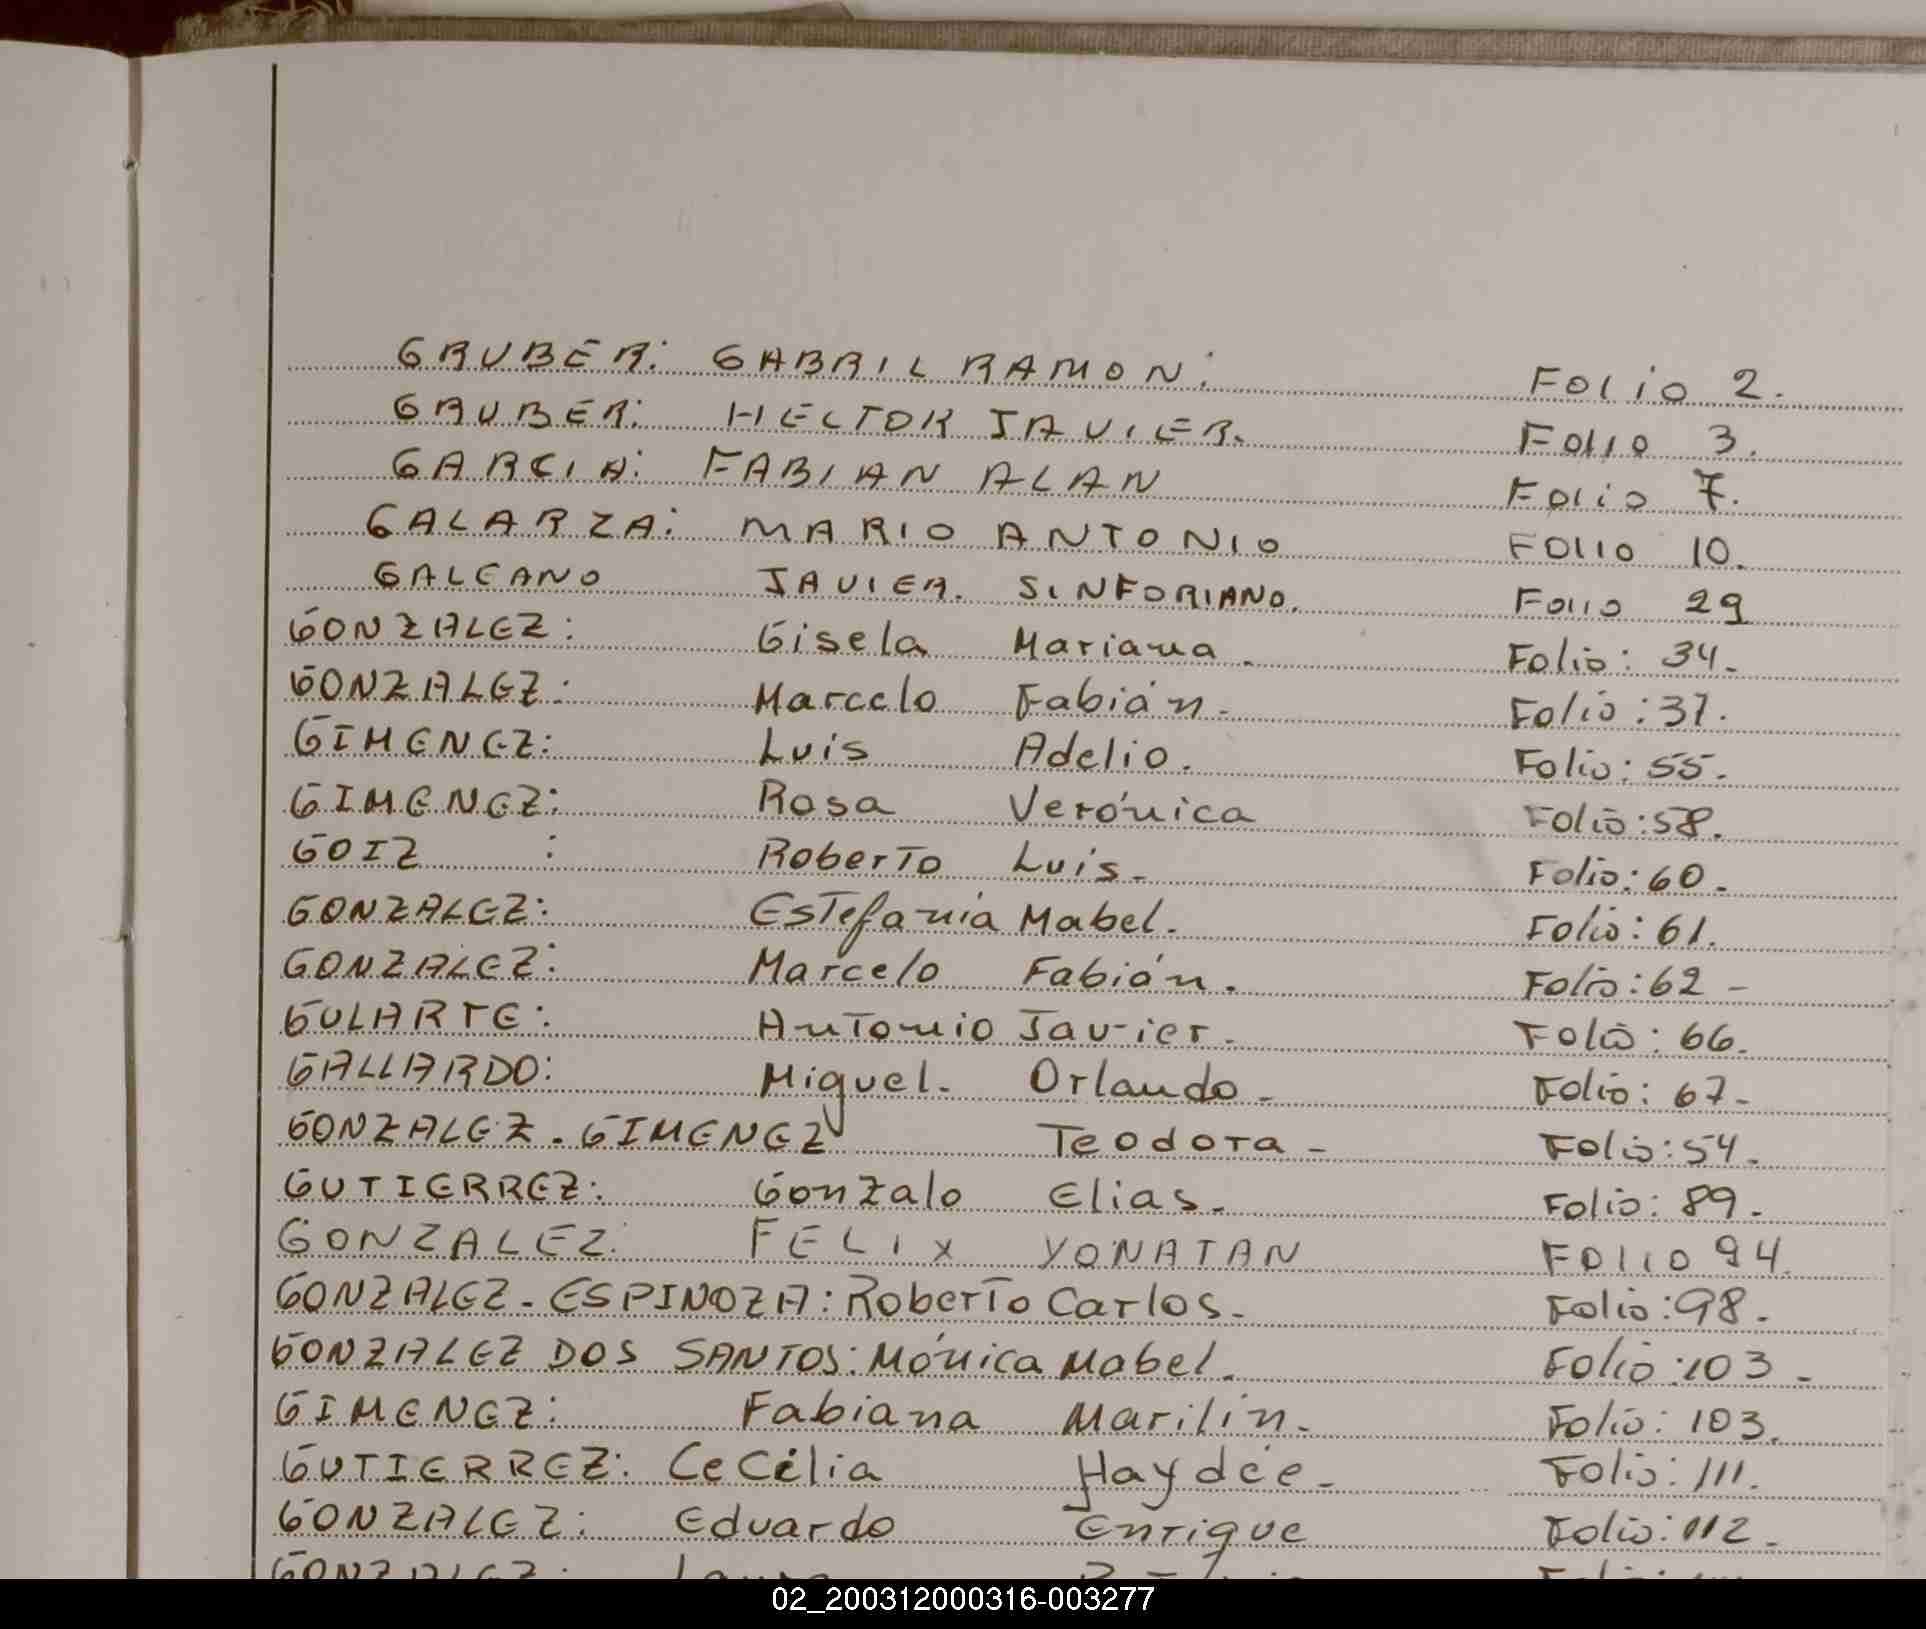 GRUBER: GABRIL RAMON. FOLIO 2.
GRUBER: HECTOR JAVIER. FOLIO 3.
GARCIA: FABIAN ALAN FOLIO 7.
GALARZA: MARIO ANTONIO FOLIO 10.
GALEANO JAVIER. SINFORIANO. FOLIO 29
GONZALEZ: Gisela Mariana. Folio: 34.
GONZALEZ: Marcelo Fabián. Folio: 37.
GIMENEZ: Luis Adelio. Folio: 55.
GIMENEZ: Rosa Verónica Folio: 58.
GOIZ : Roberto Luis. Folio: 60.
GONZALEZ: Estefania Mabel. Folio: 61.
GONZALEZ: Marcelo Fabián. Folio: 62 -
GULARTE: Antonio Javier. Folio: 66.
GALLARDO: Miguel. Orlando. Folio: 67-
GONZALEZ - GIMENEZ Teodora - Folio: 54.
GUTIERREZ: Gonzalo Elias. Folio: 89.
GONZALEZ: FELIX YONATAN FOLIO 94.
GONZALEZ - ESPINOZA: Roberto Carlos. Folio: 98.
GONZALEZ DOS SANTOS: Mónica Mabel. Folio: 103 -
GIMENEZ: Fabiana Marilin. Folio: 103.
GUTIERREZ: Cecilia Haydée. Folio: 111.
GONZALEZ: Eduardo Enrique Folio: 112.
GONZALEZ:
02_200312000316-003277